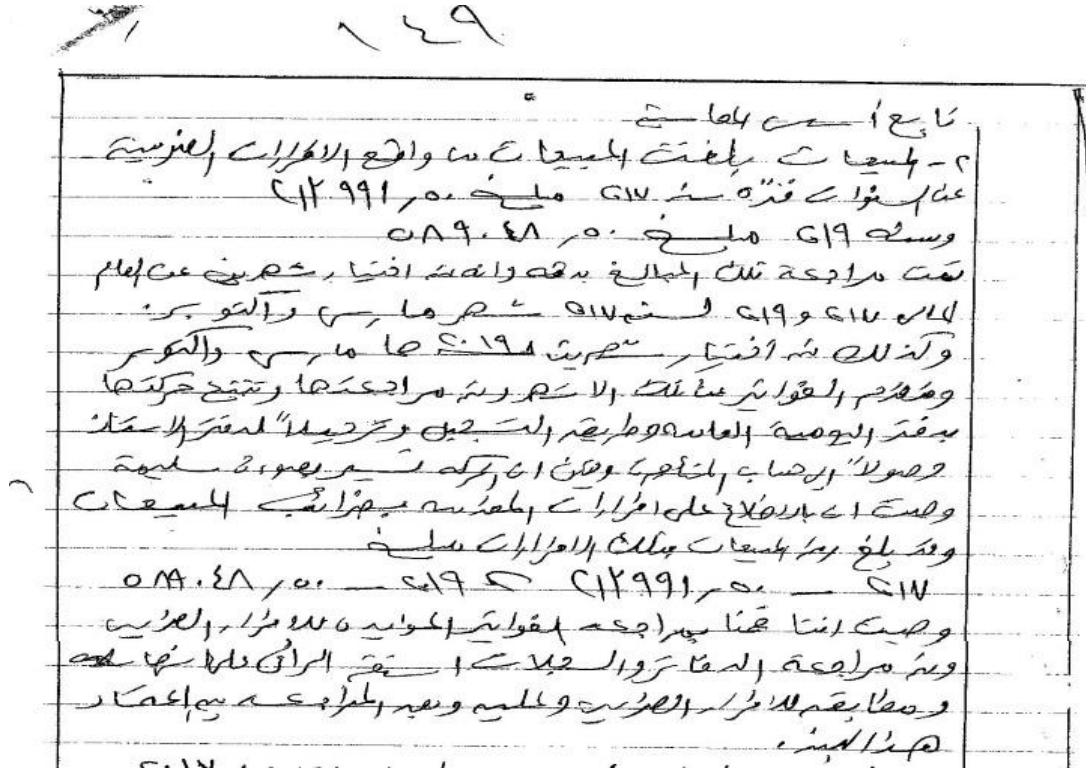 ١٤٩
تابع أسس المحاسبة
٢- المبيعات بلغت المبيعات من واقع الاقرارات الضريبية
عن السنوات فترة سنة ٢٠١٧ مبلغ ٢١٢٩٩١,٥٠
وسنة ٢٠١٩ مبلغ ٥٨٩٠٤٨,٥٠
تمت مراجعة تلك المبالغ بدقه وانه تم اختيار شهرين عن العام
المالى ٢٠١٧ و ٢٠١٩ لسنه ٢٠١٧ شهر مارس واكتوبر.
وكذلك تم اختيار شهرين لسنة ٢٠١٩ هما مارس واكتوبر
الفواتير عن تلك الاشهر وتم مراجعتها وتتبع حركتها
بدفتر اليومية العامه وطريقه التسجيل وترحيلاً لدفتر الاستاذ
وصولاً الى حساب المتاجره وتبين ان الحركه تسير بصورة سليمة
وحيث انه بالاطلاع على اقرارات المقدمه بضرائب المبيعات
وقد بلغ رقم المبيعات بتلك الاقرارات مبلغ
٢٠١٧ — ٢١٢٩٩١,٥٠ ٢٠١٩ — ٥٨٩٠٤٨,٥٠
وحيث اننا قمنا بمراجعه الفواتير المؤيده للاقرار الضريبى
وتم مراجعة الدفاتر والسجلات استقر الرأى على انها سليمه
ومطابقه للاقرار الضريبى وعليه وبعد المراجعه يتم اعتماد
هذا البند.